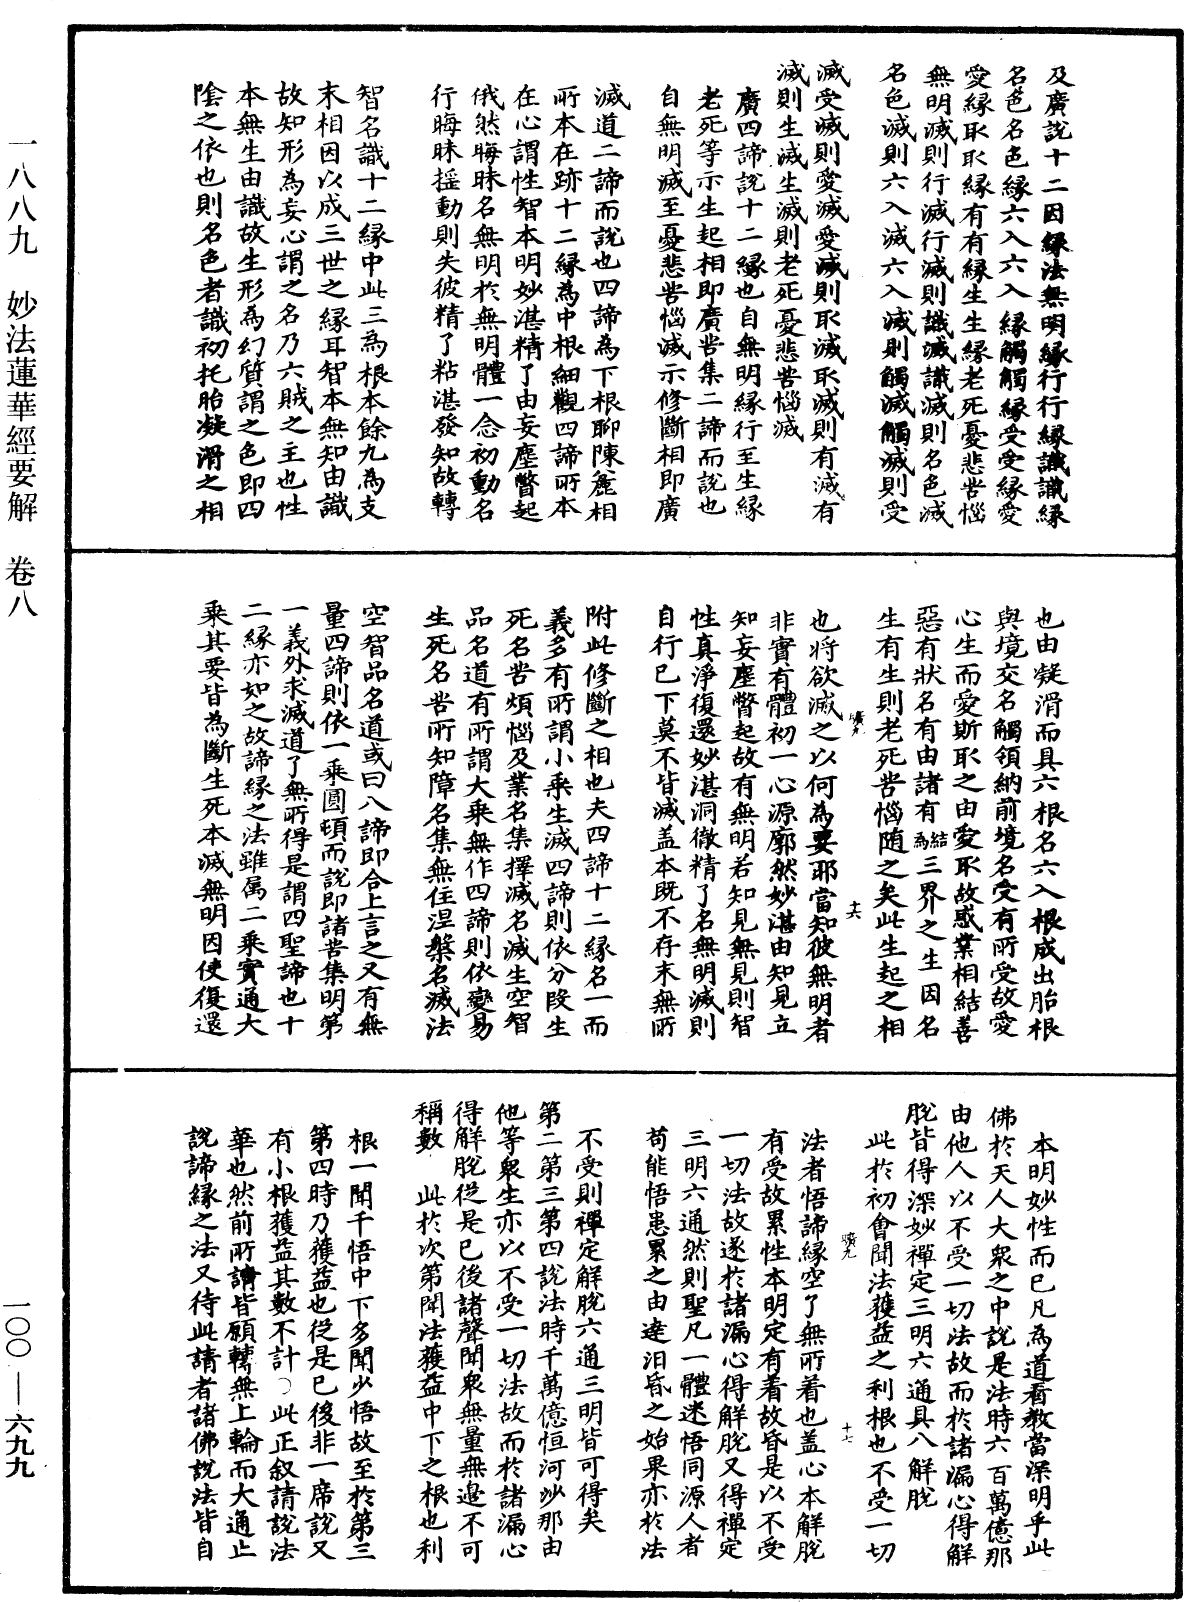 一八八九　妙法蓮華經要解　卷八
一〇〇—六九九
及廣說十二因緣法無明緣行行緣識識緣
名色名色緣六入六入緣觸觸緣受受緣愛
愛緣取取緣有有緣生生緣老死憂悲苦惱
無明滅則行滅行滅則識滅識滅則名色滅
名色滅則六入滅六入滅則觸滅觸滅則受
滅受滅則愛滅愛滅則取滅取滅則有滅有
滅則生滅生滅則老死憂悲苦惱滅
廣四諦說十二緣也自無明緣行至生緣
老死等示生起相即廣苦集二諦而說也
自無明滅至憂悲苦惱滅示修斷相即廣
滅道二諦而說也四諦為下根聊陳麁相
所本在跡十二緣為中根細觀四諦所本
在心謂性智本明妙湛精了由妄塵瞥起
俄然晦昧名無明於無明體一念初動名
行晦昧搖動則失彼精了粘湛發知故轉
智名識十二緣中此三為根本餘九為支
末相因以成三世之緣耳智本無知由識
故知形為妄心謂之名乃六賊之主也性
本無生由識故生形為幻質謂之色即四
陰之依也則名色者識初托胎凝滑之相
也由凝滑而具六根名六入根成出胎根
與境交名觸領納前境名受有所受故愛
心生而愛斯取之由愛取故惑業相結善
惡有狀名有由諸有為結三界之生因名
生有生則老死苦惱随之矣此生起之相
也將欲滅之以何為要耶當知彼無明者
非實有體初一心源廓然妙湛由知見立
知妄塵瞥起故有無明若知見無見則智
性真淨復還妙湛洞徹精了名無明滅則
自行已下莫不皆滅盖本既不存末無所
附此修斷之相也夫四諦十二緣名一而
義多有所謂小乘生滅四諦則依分段生
死名苦煩惱及業名集擇滅名滅生空智
品名道有所謂大乘無作四諦則依變易
生死名苦所知障名集無住涅槃名滅法
空智品名道或曰八諦即合上言之又有無
量四諦則依一乘圓頓而說即諸苦集明第
一義外求滅道了無所得是謂四聖諦也十
二緣亦如之故諦緣之法雖屬二乘實通大
乘其要皆為斷生死本滅無明因使復還
本明妙性而已凡為道看教當深明乎此
佛於天人大衆之中說是法時六百萬億那
由他人以不受一切法故而於諸漏心得解
脫皆得深妙禪定三明六通具八解脫
此於初會聞法獲益之利根也不受一切
法者悟諦緣空了無所着也盖心本解脫
有受故累性本明定有着故昏是以不受
一切法故遂於諸漏心得解脫又得禪定
三明六通然則聖凡一體迷悟同源人者
苟能悟患累之由達汨昏之始果亦於法
不受則禪定解脫六通三明皆可得矣
第二第三第四說法時千萬億恒河沙那由
他等衆生亦以不受一切法故而於諸漏心
得解脫從是已後諸聲聞衆無量無邊不可
稱數　此於次第聞法獲益中下之根也利
根一聞千悟中下多聞少悟故至於第三
第四時乃獲益也從是已後非一席說又
有小根獲益其數不計〇此正叙請說法
華也然前所請皆願轉無上輪而大通止
說諦緣之法又待此請者諸佛說法皆自